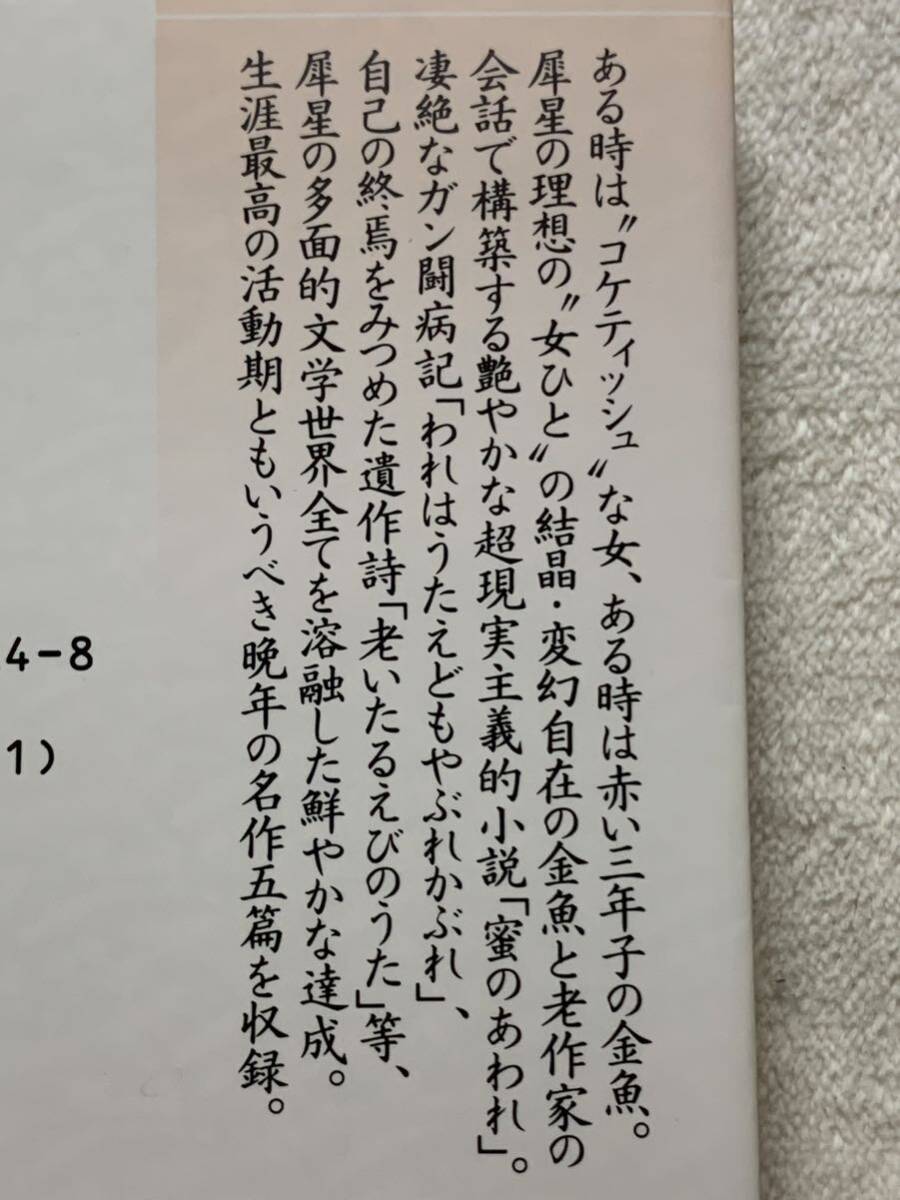 ある時は〝コケティッシュ〟な女、ある時は赤い三年子の金魚。
犀星の理想の〝女ひと〟の結晶・変幻自在の金魚と老作家の
会話で構築する艶やかな超現実主義的小説「蜜のあわれ」。
凄絶なガン闘病記「われはうたえどもやぶれかぶれ」、
自己の終焉をみつめた遺作詩「老いたるえびのうた」等、
犀星の多面的文学世界全てを溶融した鮮やかな達成。
生涯最高の活動期ともいうべき晩年の名作五篇を収録。
4-8
1)